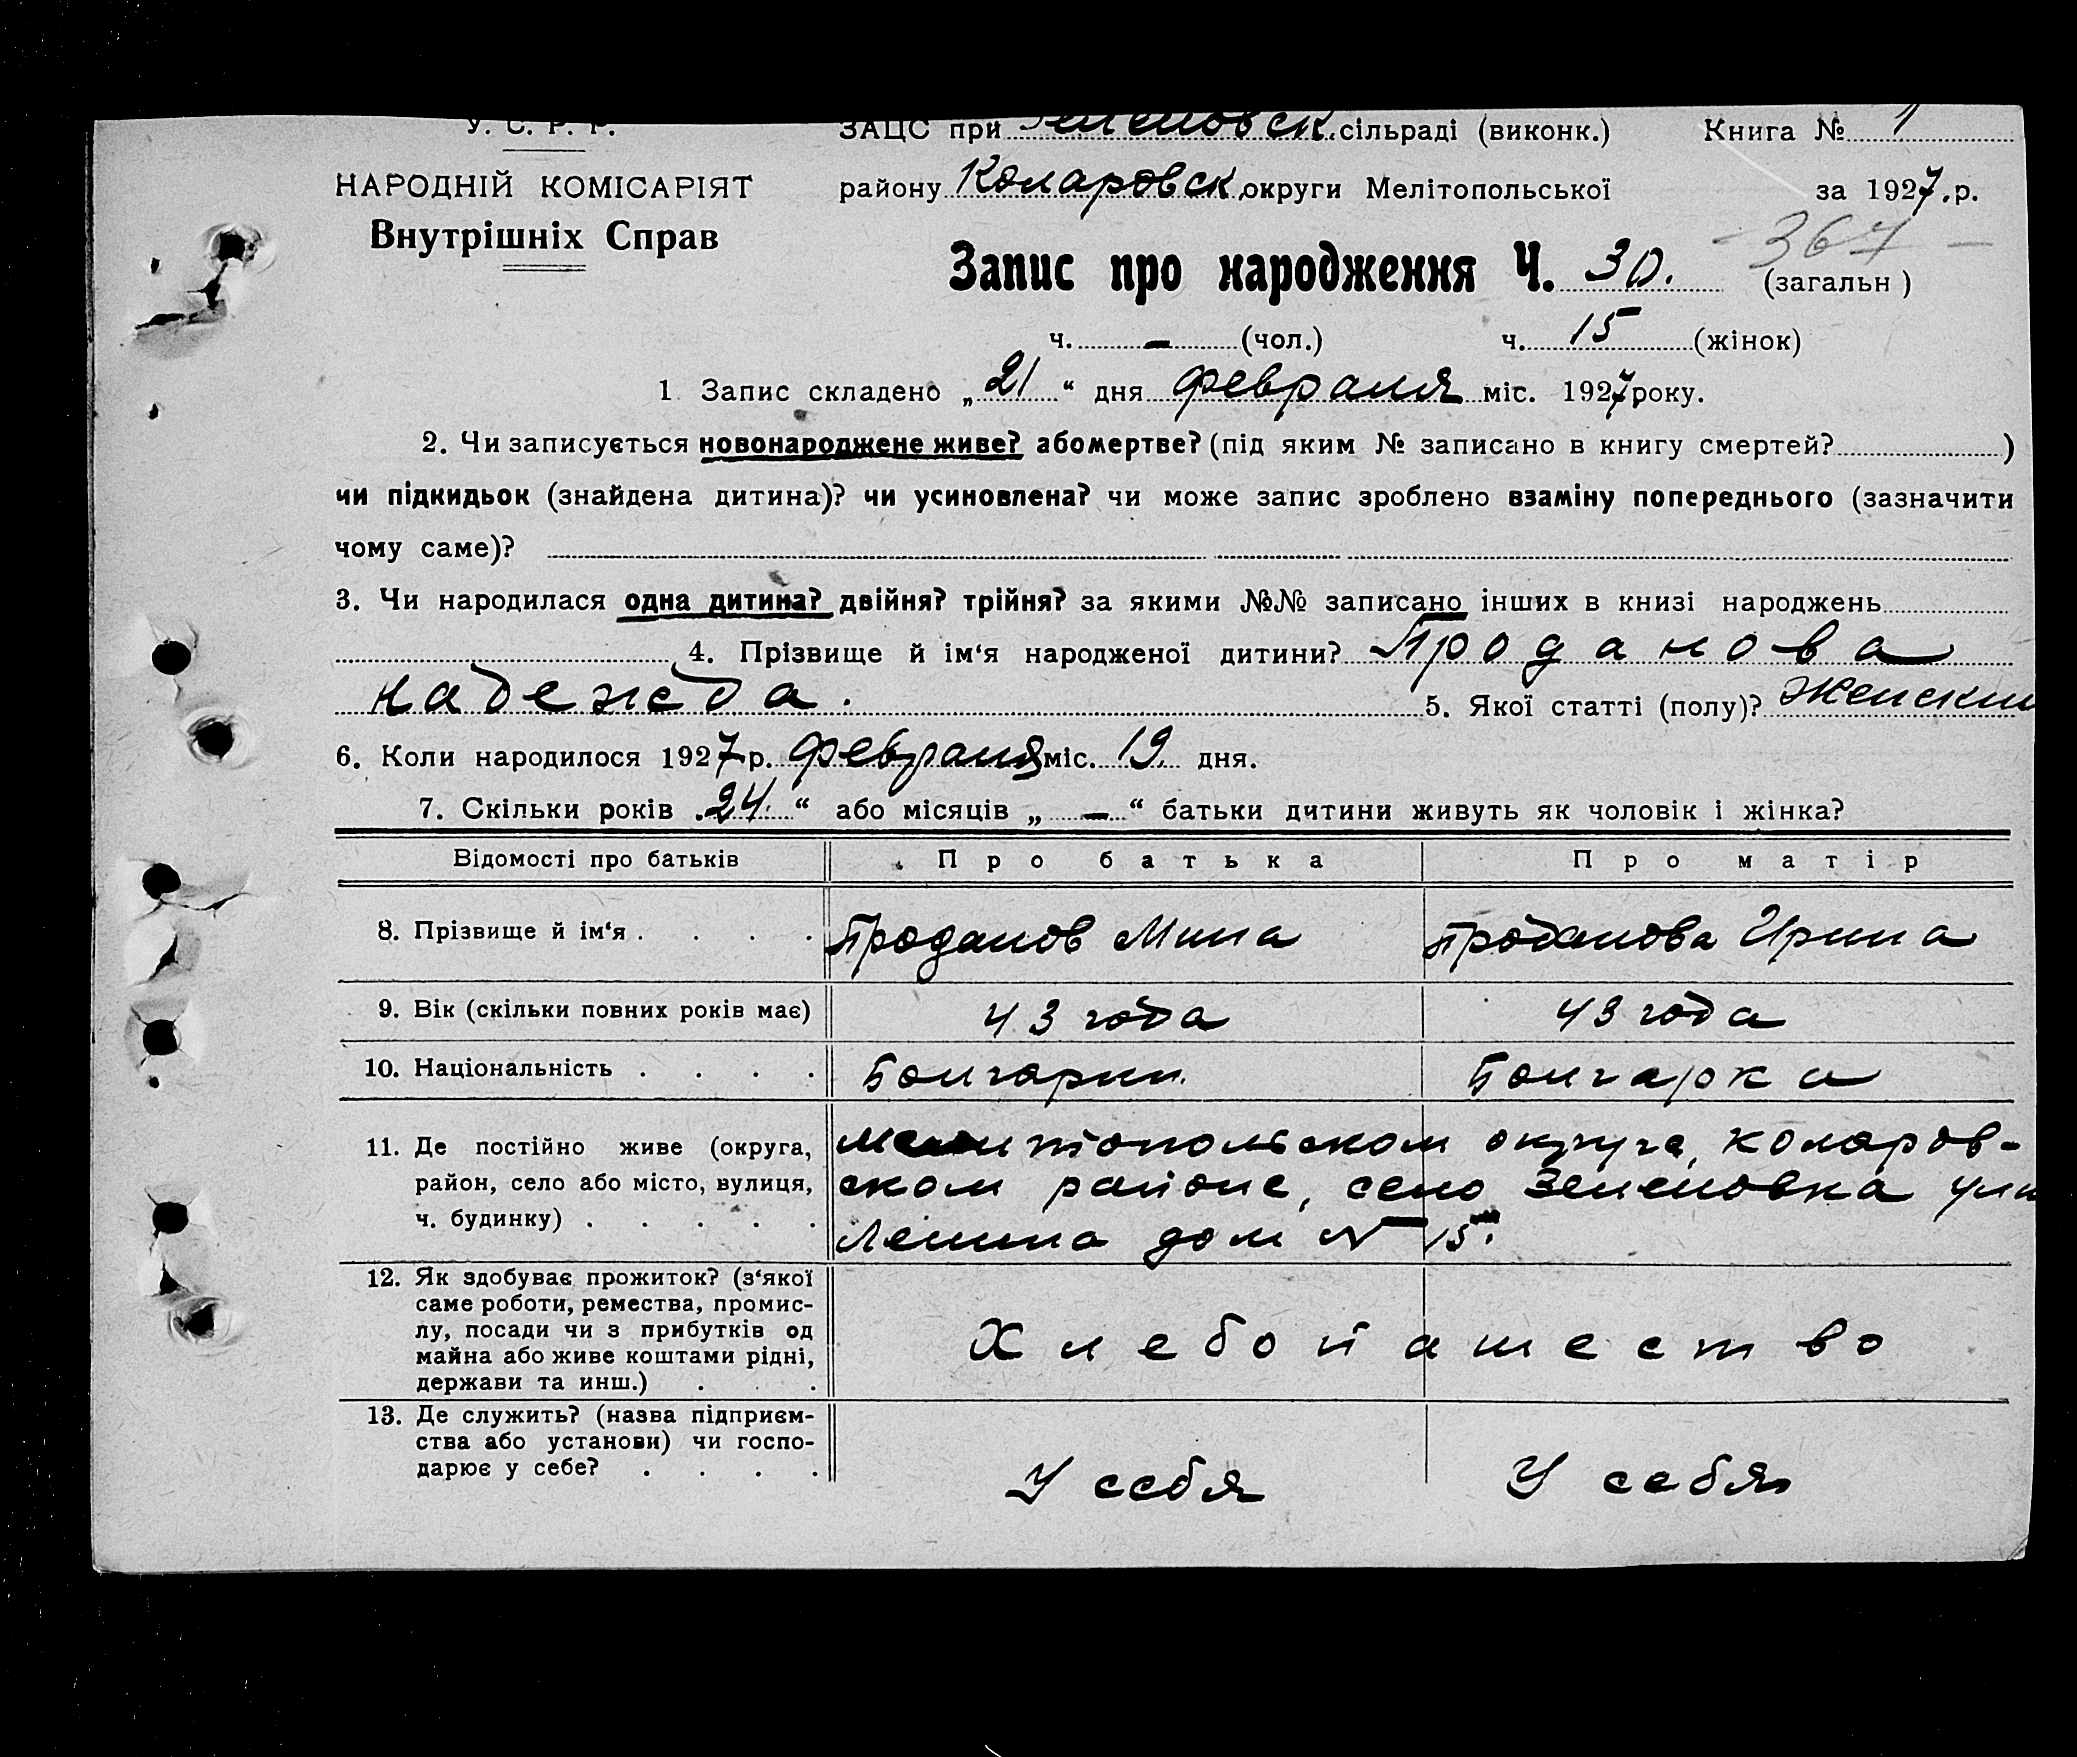 У. С. Р. Р.
ЗАЦС при Зеленовск. сільраді (виконк.) Книга № 1
НАРОДНІЙ КОМІСАРІЯТ
району Коларовск. округи Мелітопольської за 1927.р.
Внутрішніх Справ
- 367 -
Запис про народження Ч. 30. (загальн )
ч. - (чол.) ч. 15 (жінок)
1 Запис складено „ 21 “ дня февраля міс. 1927 року.
2. Чи записується новонароджене живе? або мертве? (під яким № записано в книгу смертей? )
чи підкидьок (знайдена дитина)? чи усиновлена? чи може запис зроблено взаміну попереднього (зазначити
чому саме)?
3. Чи народилася одна дитина? двійня? трійня? за якими №№ записано інших в книзі народжень
4. Прізвище й ім‘я народженої дитини? Проданова
Надежда. 5. Якої статті (полу)? Женский
6. Коли народилося 1927 р. февраля міс. 19 дня.
7. Скільки років „ 24 “ або місяців „ - “ батьки дитини живуть як чоловік і жінка?
Відомості про батьків Про батька Про матір
8. Прізвище й ім‘я . . . . Проданов Мина Проданова Ирина
9. Вік (скільки повних років має) 43 года 43 года
10. Національність . . . . Болгарин. Болгарка
11. Де постійно живе (округа, Мелитопольском округе, Коларов-
район, село або місто, вулиця, ском районе, село Зеленовка ули
ч. будинку) . . . . . Ленина дом № 15.
12. Як здобуває прожиток? (з‘якої
саме роботи, ремества, промис-
лу, посади чи з прибутків од
майна або живе коштами рідні,
держави та инш.) . . . Хлебопашество
13. Де служить? (назва підприєм-
ства або установи) чи госпо-
дарює у себе? . . . . У себя У себя